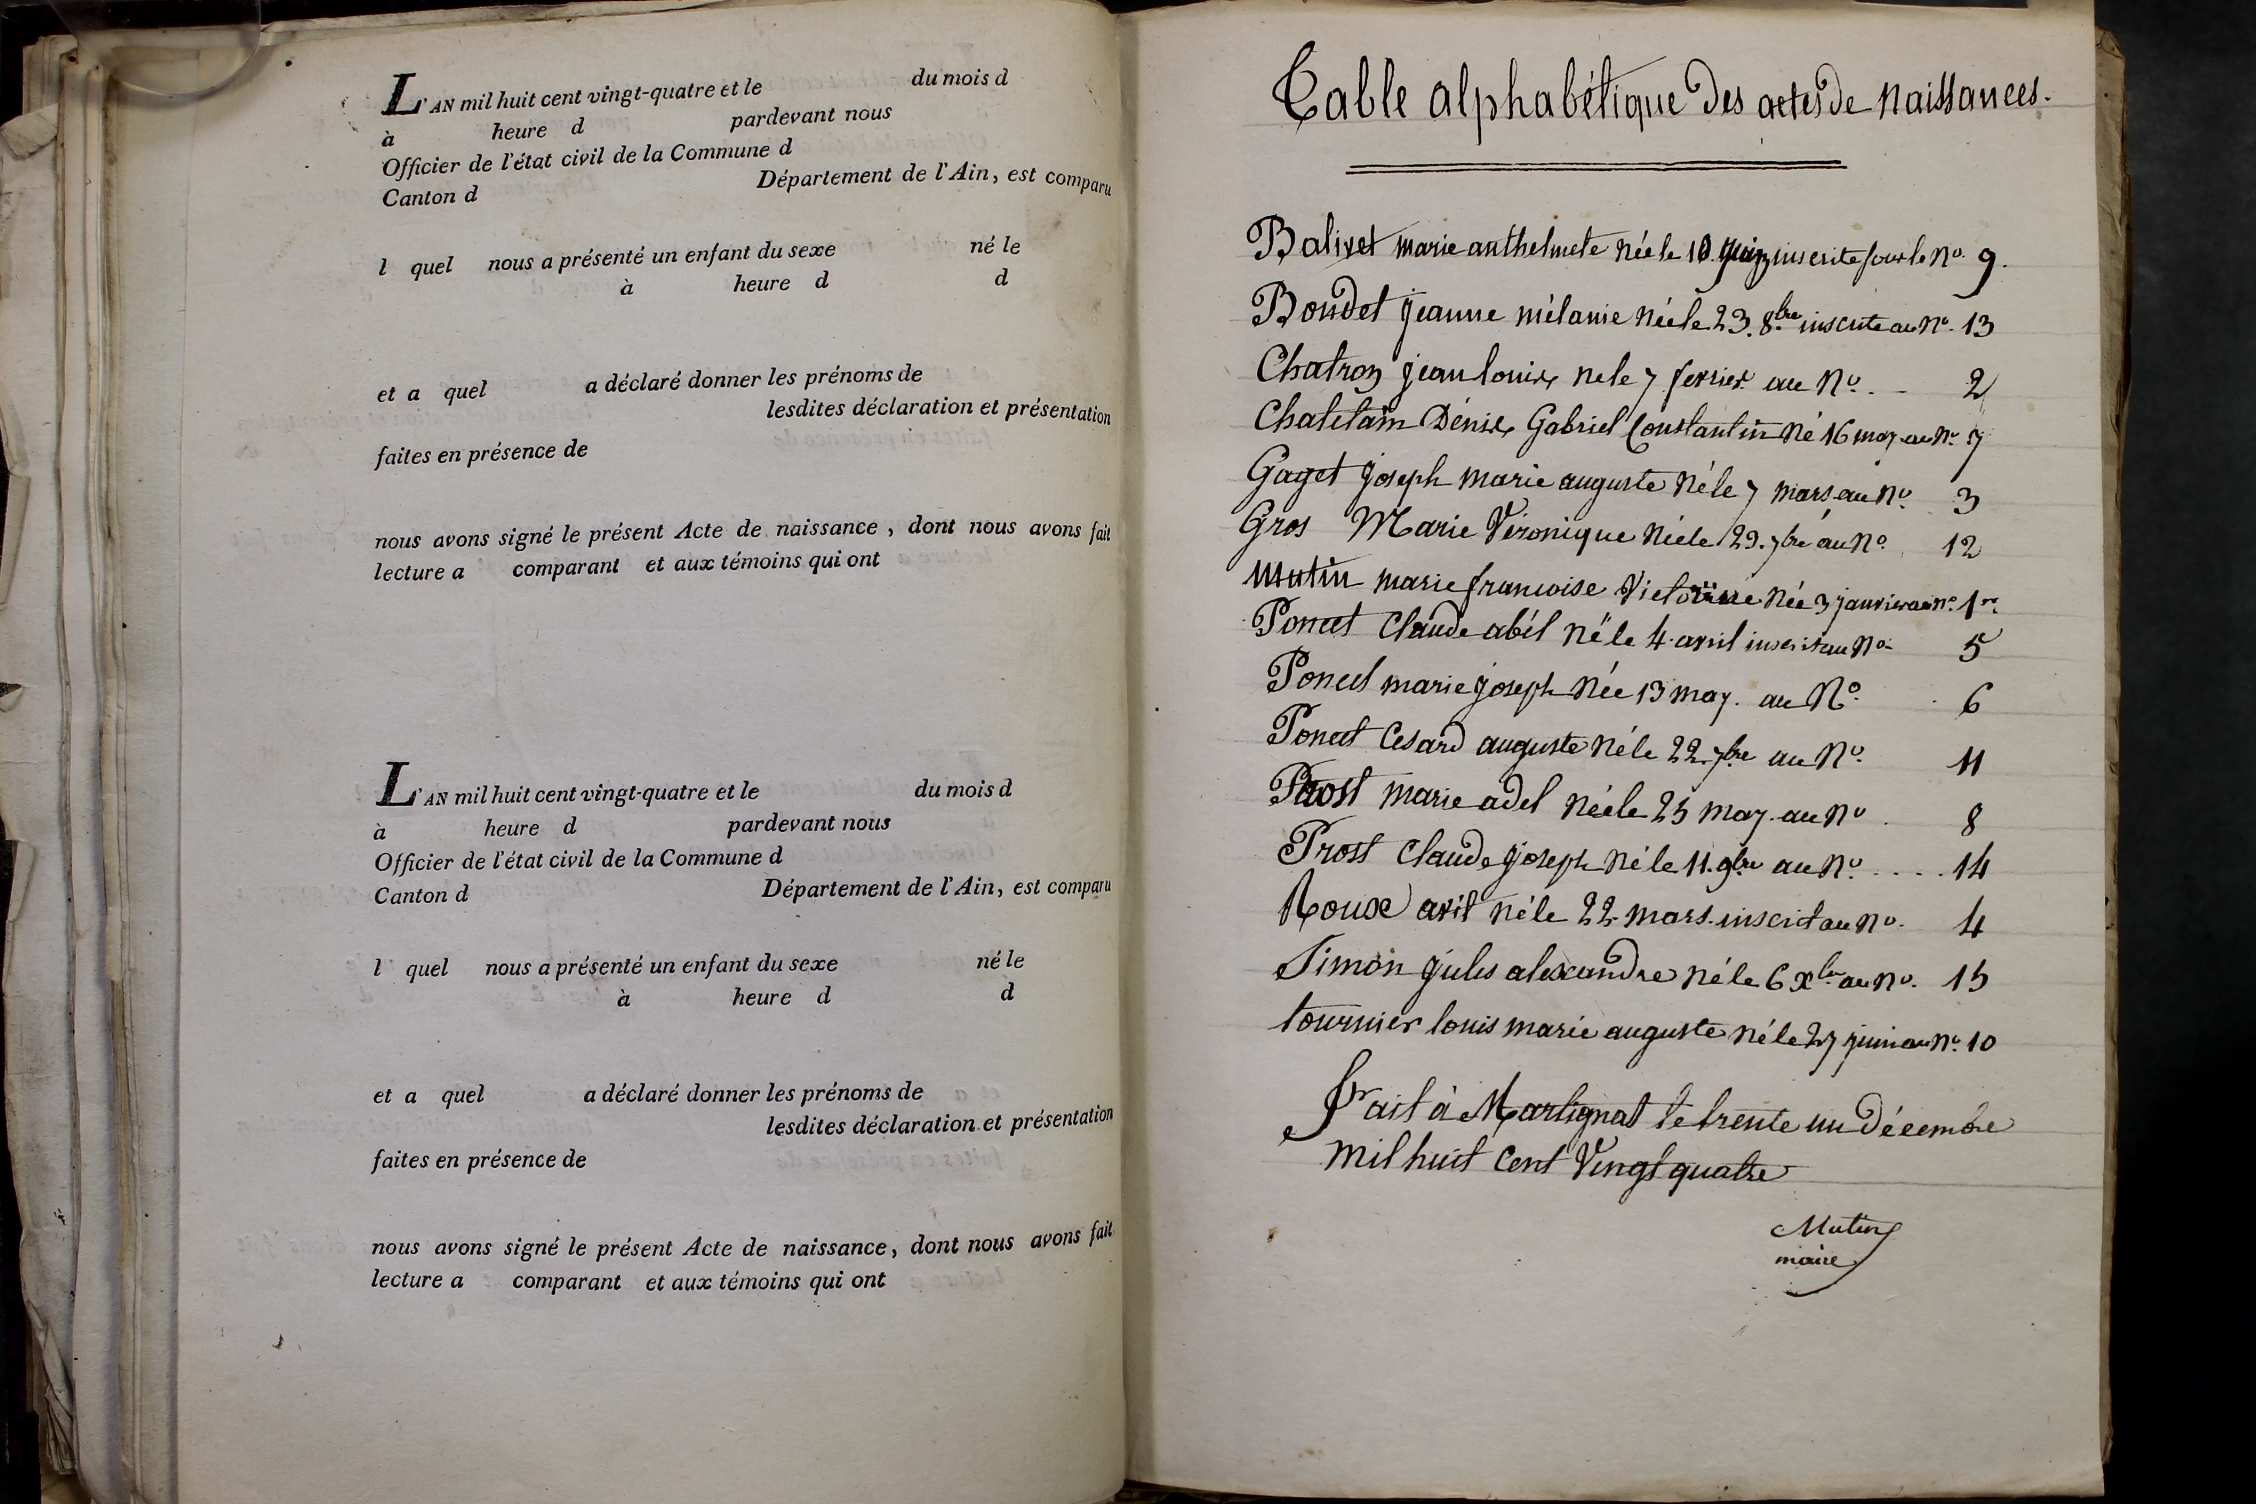 L'AN mil huit cent vingt-quatre et le du mois d
à heure d pardevant nous
Officier de l'état civil de la Commune d
Canton d Département de l'Ain, est comparu
l quel nous a présenté un enfant du sexe né le
à heure d d
et a quel a déclaré donner les prénoms de
lesdites déclaration et présentation
faites en présence de
nous avons signé le présent Acte de naissance, dont nous avons fait
lecture a comparant et aux témoins qui ont
L'AN mil huit cent vingt-quatre et le du mois d
à heure d pardevant nous
Officier de l'état civil de la Commune d
Canton d Département de l'Ain, est comparu
l quel nous a présenté un enfant du sexe né le
à heure d d
et a quel a déclaré donner les prénoms de
lesdites déclaration et présentation
faites en présence de
nous avons signé le présent Acte de naissance, dont nous avons fait
lecture a comparant et aux témoins qui ont
Table alphabétique des actes de Naissances.
Balivet marie anthelmete Née le 10 juin inscrite sous le No. 9.
Boudet jeanne mélanie Née le 23. 8bre inscrite au No. 13
Chatron jean louis ne le 7 fevrier au No. 2
Chatelain Dénis Gabriel Constantin Né 16 may au No 7
Gaget joseph marie auguste Né le 7 mars au No 3
Gros Marie Véronique Née le 29. 7bre au No. 12
Mutin marie francoise Victoirine Née 3 janvier au no. 1er
Poncet Claude abél Né le 4 avril inscrit au No 5
Poncet marie joseph Née 13 may. au No. 6
Poncet Cesard auguste Né le 22. 7bre au No. 11
Prost marie adel Née le 25 may. au No 8
Prost Claude joseph Né le 11. 9bre au No. .... 14
Roux avit Né le 22 mars. inscrit au No. 4
Simon jules alexandre Né le 6 Xbre au No. 15
tournier louis marie auguste Né le 27 juin au No. 10
Fait à Martignat le trente un Décembre
mil huit Cent Vingt quatre
Mutin
maire